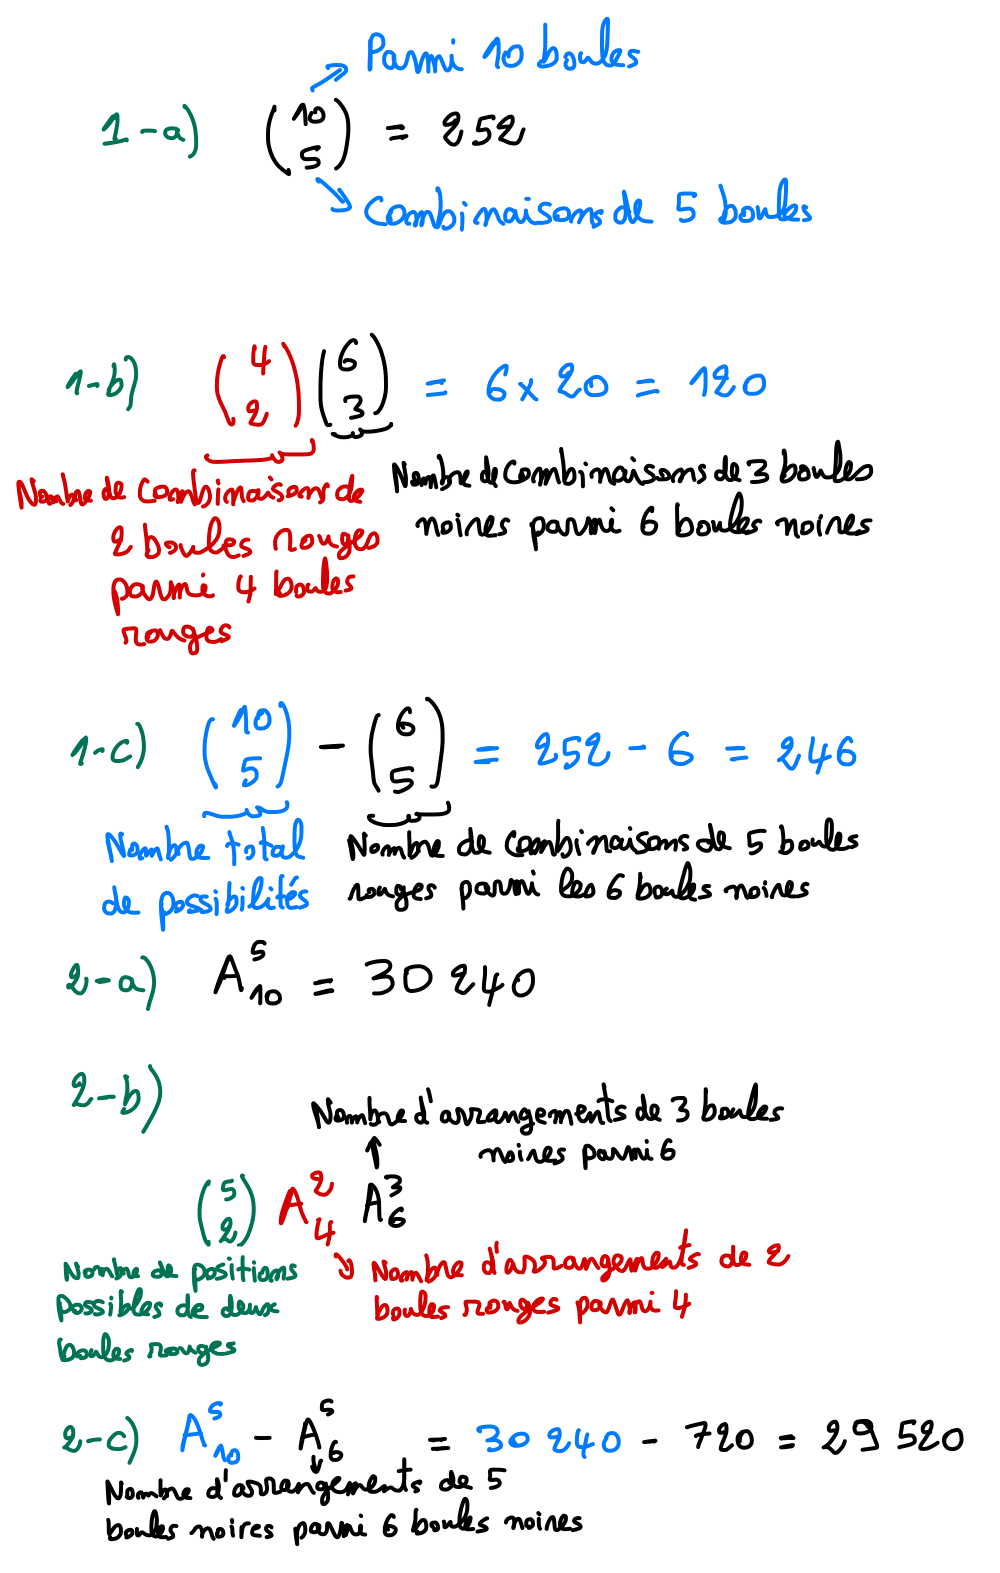 Parmi 10 boules
1-a) (10 5) = 252
Combinaisons de 5 boules
1-b) (4 2) (6 3) = 6 x 20 = 120
Nombre de combinaisons de
2 boules rouges
parmi 4 boules
rouges
Nombre de combinaisons de 3 boules
noires parmi 6 boules noires
1-c) (10 5) - (6 5) = 252 - 6 = 246
Nombre total
de possibilités
Nombre de combinaisons de 5 boules
rouges parmi les 6 boules noires
2-a) A⁵₁₀ = 30 240
2-b)
Nombre d'arrangements de 3 boules
noires parmi 6
(5 2) A²₄ A³₆
Nombre de positions
possibles de deux
boules rouges
Nombre d'arrangements de 2
boules rouges parmi 4
2-c) A⁵₁₀ - A⁵₆ = 30 240 - 720 = 29 520
Nombre d'arrangements de 5
boules noires parmi 6 boules noires